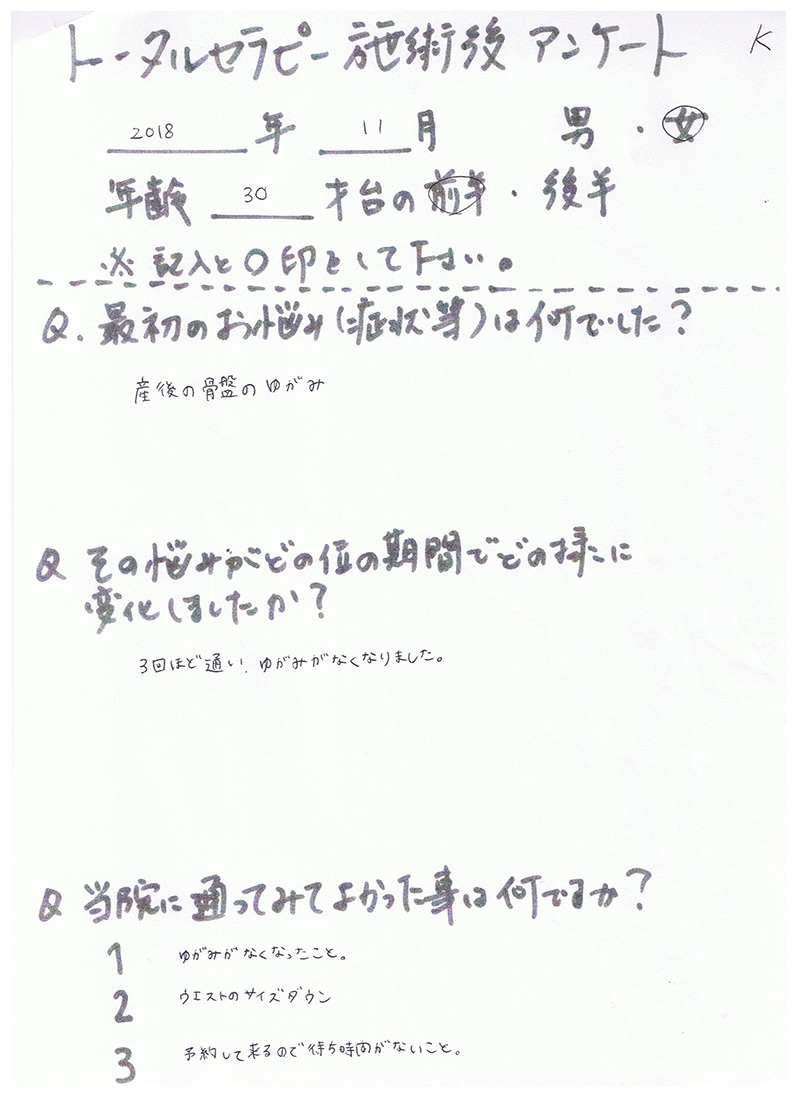 トータルセラピー施術後 アンケート K
2018年 11月 男・女
年齢 30 才台の 前半・後半
※ 記入と〇印をして下さい。
Q. 最初のお悩み(症状等)は何でしたか?
産後の骨盤のゆがみ
Q その悩みがどの位の期間でどの様に
変化しましたか?
3回ほど通い、ゆがみがなくなりました。
Q 当院に通ってみてよかった事は何ですか?
1 ゆがみがなくなったこと。
2 ウエストのサイズダウン
3 予約して来るので待ち時間がないこと。